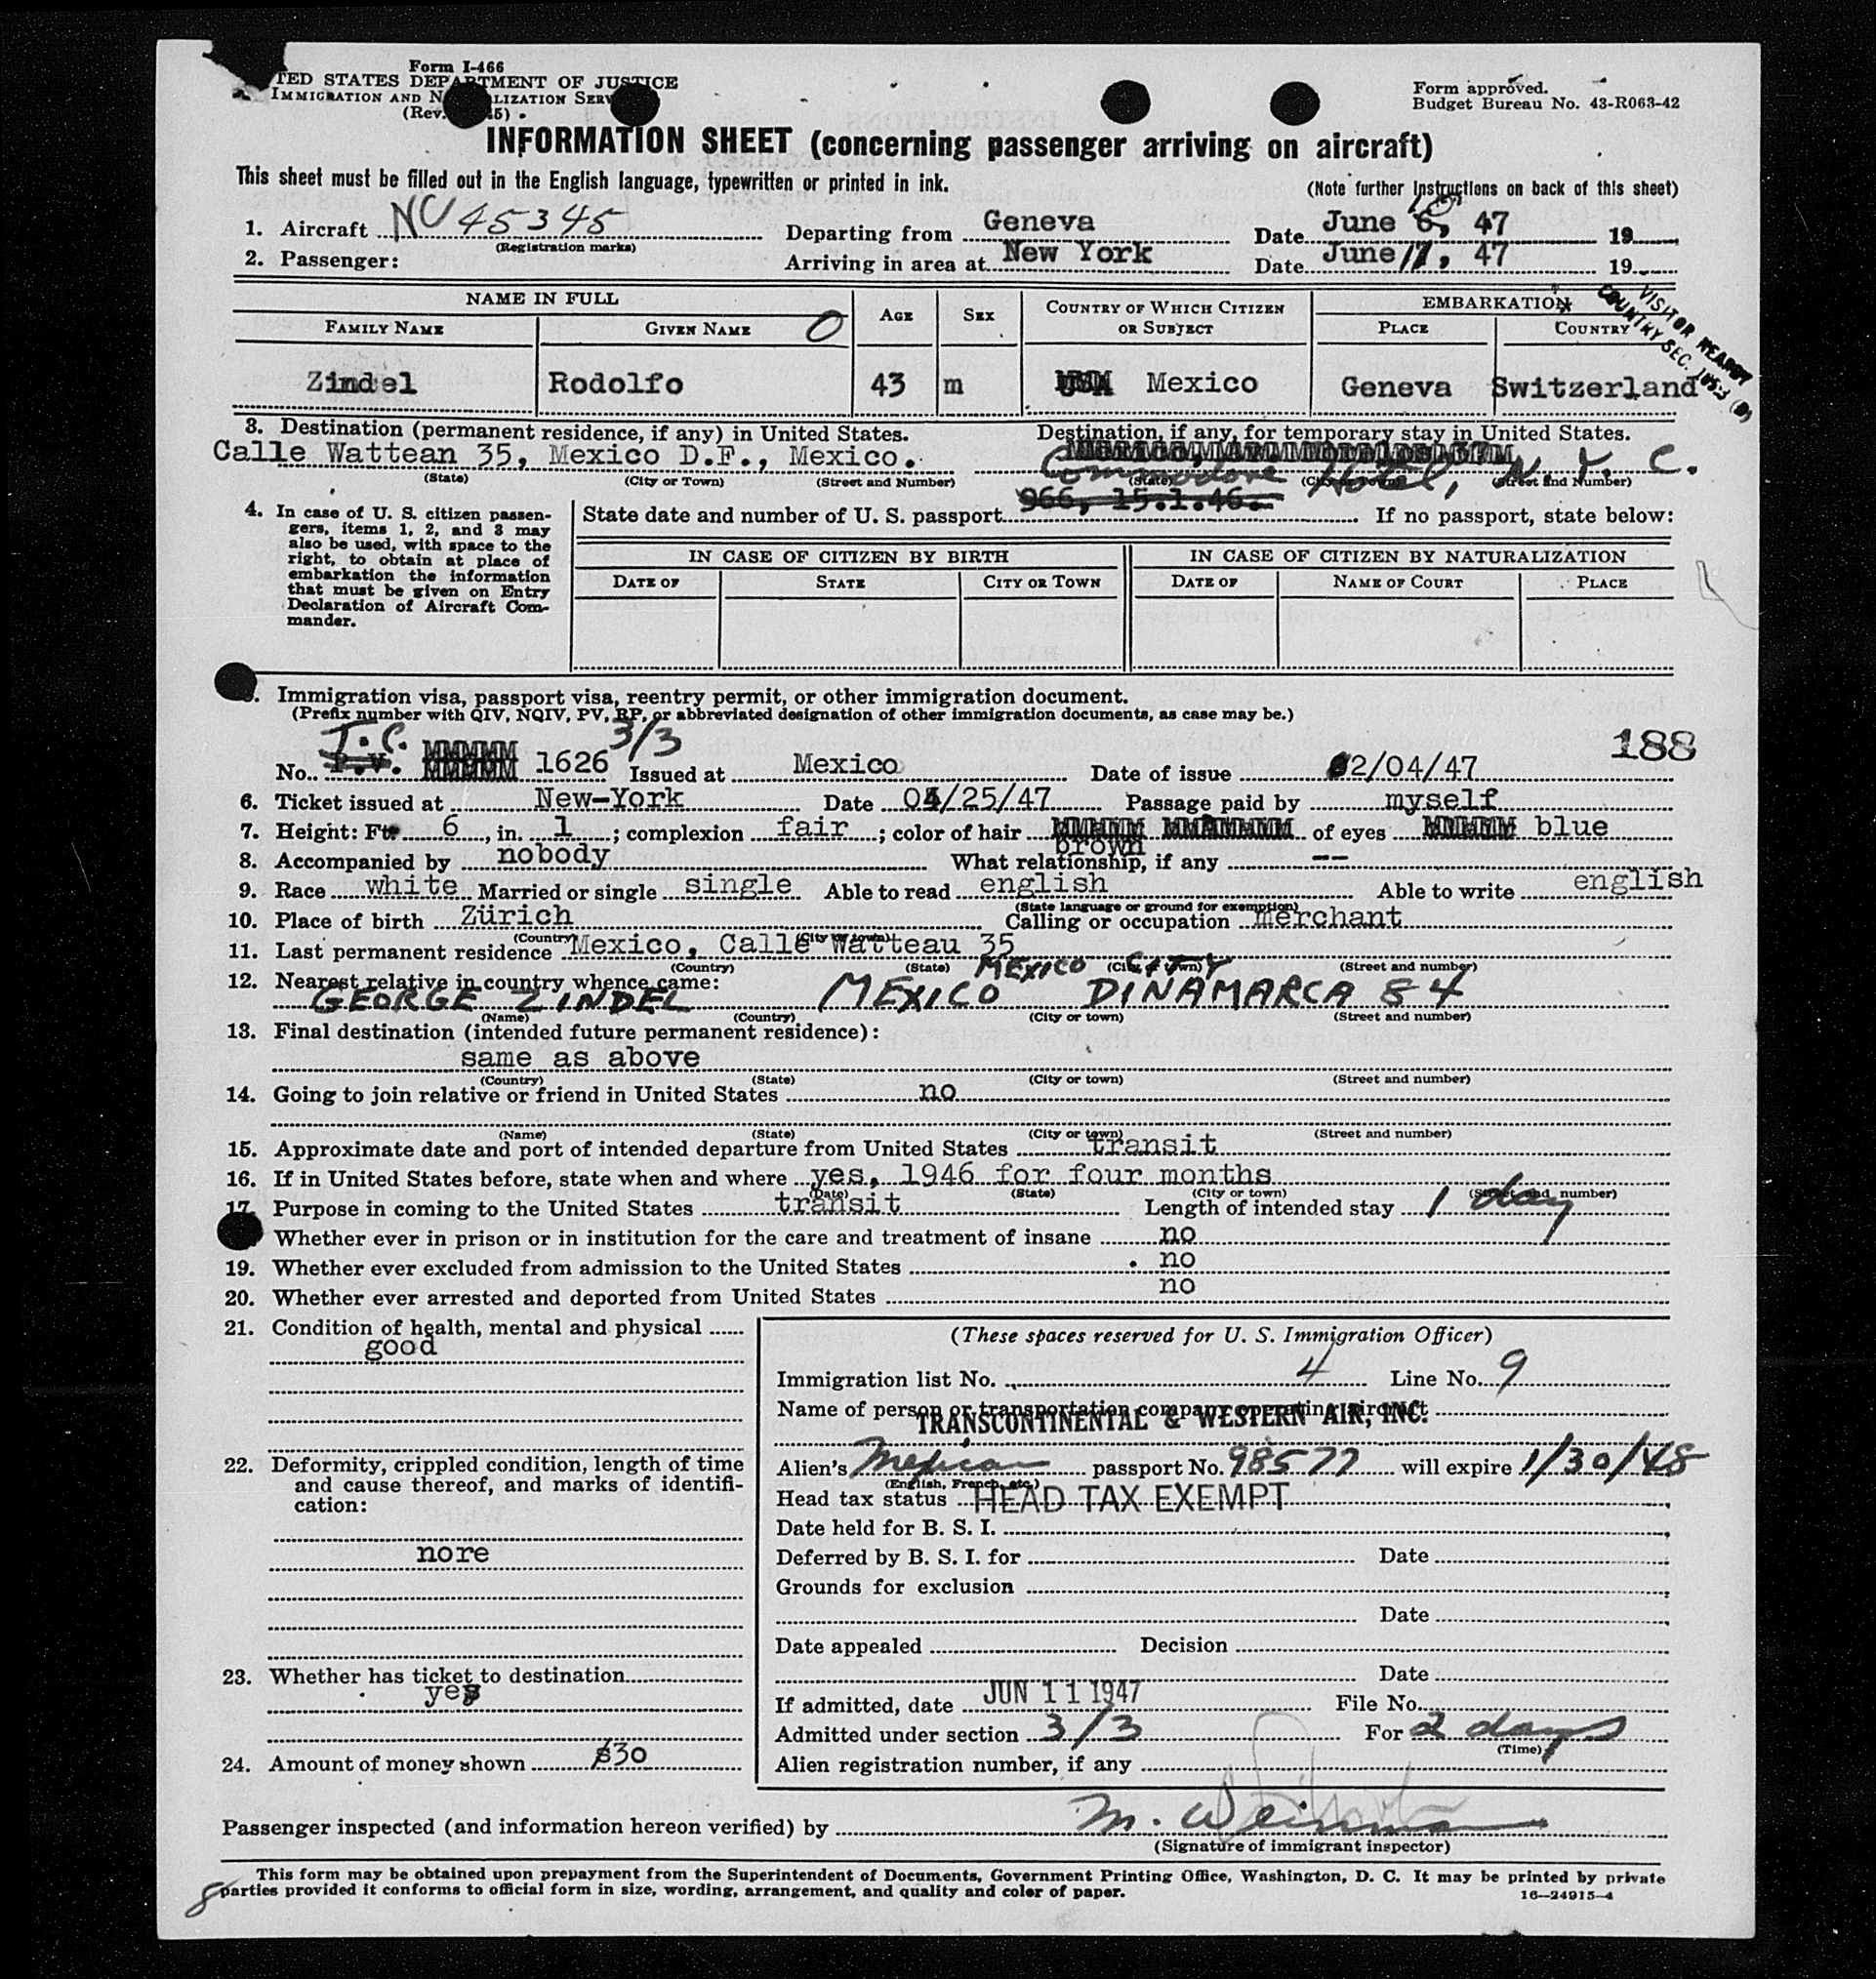 Form I-466
TED STATES DEPARTMENT OF JUSTICE
IMMIGRATION AND N LIZATION SERV
(Rev. 5)
Form approved.
Budget Bureau No. 43-R063-42
INFORMATION SHEET (concerning passenger arriving on aircraft)
This sheet must be filled out in the English language, typewritten or printed in ink.
(Note further instructions on back of this sheet)
1. Aircraft NC 45345 Departing from Geneva Date June 47 19
(Registration marks)
2. Passenger: Arriving in area at New York Date June 11, 47 19
NAME IN FULL
EMBARKATION
FAMILY NAME GIVEN NAME AGE SEX COUNTRY OF WHICH CITIZEN OR SUBJECT PLACE COUNTRY
VISITOR READY
COUNTRY SEC.
Zindel Rodolfo 43 m Mexico Geneva Switzerland
3. Destination (permanent residence, if any) in United States. Destination, if any, for temporary stay in United States.
Calle Wattean 35, Mexico D.F., Mexico. Commodore Hotel, N. Y. C.
(State) (City or Town) (Street and Number) (State) (City or Town) (Street and Number)
966, 15.1.46.
4. In case of U. S. citizen passen-
gers, items 1, 2, and 3 may
also be used, with space to the
right, to obtain at place of
embarkation the information
that must be given on Entry
Declaration of Aircraft Com-
mander.
State date and number of U. S. passport If no passport, state below:
IN CASE OF CITIZEN BY BIRTH IN CASE OF CITIZEN BY NATURALIZATION
DATE OF STATE CITY OR TOWN DATE OF NAME OF COURT PLACE
Immigration visa, passport visa, reentry permit, or other immigration document.
(Prefix number with QIV, NQIV, PV, RP, or abbreviated designation of other immigration documents, as case may be.)
T.C. 3/3 188
No. P.V. 1626 Issued at Mexico Date of issue 2/04/47
6. Ticket issued at New-York Date /25/47 Passage paid by myself
7. Height: Ft. 6, in. 1; complexion fair; color of hair brown of eyes blue
8. Accompanied by nobody What relationship, if any --
9. Race white Married or single single Able to read english Able to write english
(State language or ground for exemption)
10. Place of birth Zürich Calling or occupation merchant
(Country) (City or town)
11. Last permanent residence Mexico, Calle Watteau 35
(Country) (State) (City or town) (Street and number)
MEXICO CITY
12. Nearest relative in country whence came:
GEORGE ZINDEL MEXICO DINAMARCA 84
(Name) (Country) (City or town) (Street and number)
13. Final destination (intended future permanent residence):
same as above
(Country) (State) (City or town) (Street and number)
14. Going to join relative or friend in United States no
(Name) (State) (City or town) (Street and number)
15. Approximate date and port of intended departure from United States transit
16. If in United States before, state when and where yes, 1946 for four months
(Date) (State) (City or town) (Street and number)
17. Purpose in coming to the United States transit Length of intended stay 1 day
Whether ever in prison or in institution for the care and treatment of insane no
19. Whether ever excluded from admission to the United States no
20. Whether ever arrested and deported from United States no
21. Condition of health, mental and physical
good
22. Deformity, crippled condition, length of time
and cause thereof, and marks of identifi-
cation:
nore
23. Whether has ticket to destination
yes
24. Amount of money shown $30
(These spaces reserved for U. S. Immigration Officer)
Immigration list No. 4 Line No. 9
Name of person or transportation company operating aircraft
TRANSCONTINENTAL & WESTERN AIR, INC.
Alien's Mexican passport No. 98577 will expire 1/30/48
(English, French, etc.)
Head tax status HEAD TAX EXEMPT
Date held for B. S. I.
Deferred by B. S. I. for Date
Grounds for exclusion
Date
Date appealed Decision
Date
If admitted, date JUN 11 1947 File No.
Admitted under section 3/3 For 2 days
(Time)
Alien registration number, if any
Passenger inspected (and information hereon verified) by M. Weinman
(Signature of immigrant inspector)
This form may be obtained upon prepayment from the Superintendent of Documents, Government Printing Office, Washington, D. C. It may be printed by private
parties provided it conforms to official form in size, wording, arrangement, and quality and color of paper.
16—24915-4
8